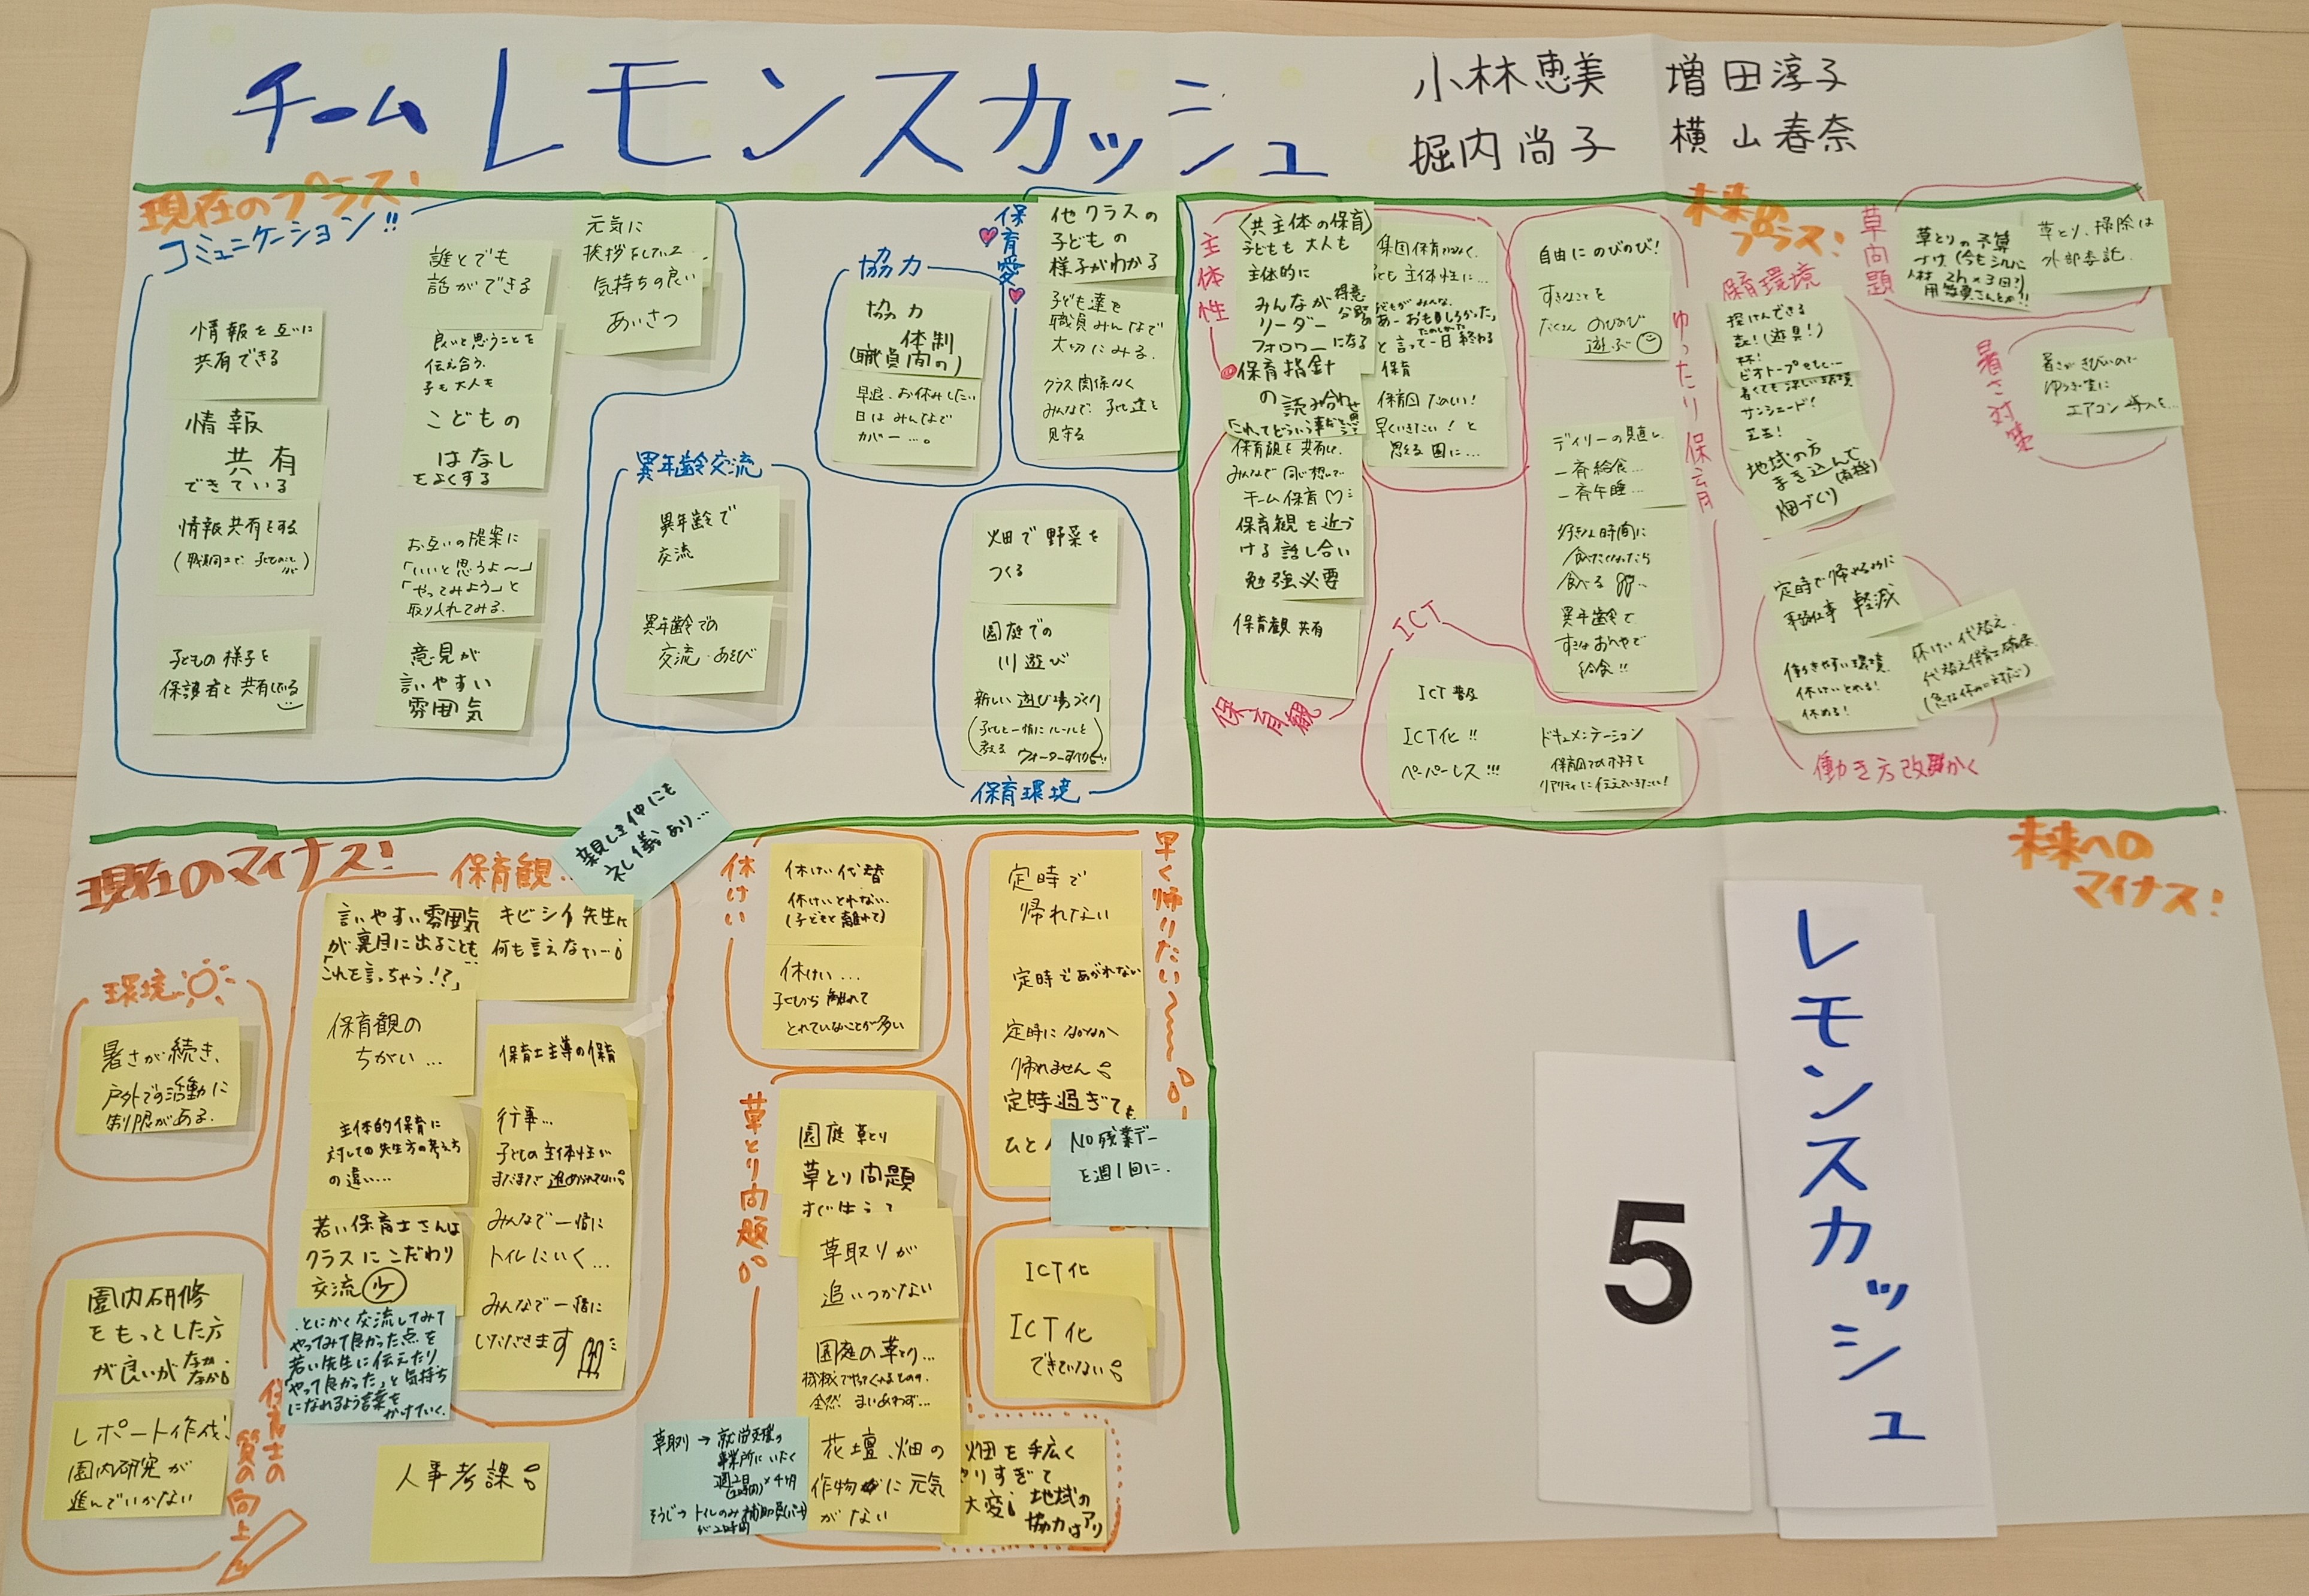 チーム レモンスカッシュ
小林恵美 増田淳子
堀内尚子 横山春奈
現在のプラス!
コミュニケーション!!
情報を互いに
共有できる
情報
共有
できている
情報共有をする
子どもの様子を
保護者と共有している
誰とでも
話ができる
良いと思うことを
伝え合う、
子も大人も
こどもの
はなし
をよくする
お互いの提案に
「いいと思うよ〜」
「やってみよう」と
取り入れてみる。
意見が
言いやすい
雰囲気
元気に
挨拶をしていて
気持ちの良い
あいさつ
協力
協力
体制
(職員間の)
早退、お休みしたい
日はみんなで
カバー…。
保育愛
他クラスの
子どもの
様子がわかる
子ども達を
職員みんなで
大切にみる。
クラス関係なく
みんなで子ども達を
見守る
異年齢交流
異年齢で
交流
異年齢での
交流・あそび
畑で野菜を
つくる
園庭での
川遊び
新しい遊び場づくり
(子どもと一緒にルールを
考える
保育環境
未来のプラス!
主体性
〈共主体の保育〉
子どもも大人も
主体的に
みんなが得意分野
リーダー
フォロワーになる
保育指針
の読み合わせ
保育観を共有し、
みんなで同じ想いで
チーム保育♡
保育観を近づ
ける話し合い
勉強必要
保育観共有
保育観
集団保育ではなく、
子ども主体性に…
と言って一日終わる
保育
保育園たのしい!
早くいきたい!と
思える園に…
ゆったり保育
自由にのびのび!
すきなことを
たくさんのびのび
遊ぶ
デイリーの見直し
一斉給食…
一斉午睡…
好きな時間に
食べたくなったら
食べる
異年齢で
すきなおへやで
給食!!
ICT
ICT普及
ICT化!!
ペーパーレス!!!
ドキュメンテーション
保育園での様子を
リアリティに伝えていきたい!
保育環境
探けんできる
森!(遊具!)
林!
ビオトープもしくは…
暑くても涼しい環境
サンシェード!
芝生!
地域の方
まき込んで
畑づくり
草問題
草とりの予算
草とり、掃除は
外部委託。
暑さ対策
暑さがきびしいので
ゆうぎ室に
エアコン導入を…
定時で帰れるように
事務仕事 軽減
働きやすい環境
休けいとれる!
休める!
休けい代替え、
代替え保育士確保
(急な休みに対応)
働き方改かく
現在のマイナス!
環境
暑さが続き、
戸外での活動に
制限がある。
保育観
言いやすい雰囲気
が裏目に出ることも
「これを言っちゃう!?」
キビシイ先生に
何も言えない…
保育観の
ちがい…
主体的保育に
対しての先生方の考え方
の違い…
若い保育士さんは
クラスにこだわり
交流 少
・とにかく交流してみて
やってみて良かった点を
若い先生に伝えたり
「やって良かった」と気持ち
になれるよう言葉を
かけていく。
保育士主導の保育
行事…
子どもの主体性が
まだまだ進められてない
みんなで一緒に
トイレにいく…
みんなで一緒に
いただきます
親しき仲にも
礼儀あり…
休けい
休けい代替
休けいとれない。
(子どもと離れて)
休けい…
子どもから離れて
とれていないことが多い
早く帰りたい〜
定時で
帰れない
定時であがれない
定時になかなか
帰れません
定時過ぎても
NO残業デー
を週1回に.
草とり問題
園庭草とり
草とり問題
すぐ生えて
草取りが
追いつかない
園庭の草とり…
全然まにあわず…
花壇、畑の
作物に元気
がない
畑を手広く
やりすぎて
大変
地域の
協力はアリ
草取り→就労支援の
事業所にいたく
ICT化
ICT化
できていない
保育士の質の向上
園内研修
をもっとした方
が良いがなかなか
レポート作成、
園内研究が
進んでいかない
人事考課
未来へのマイナス!
レモンスカッシュ
5